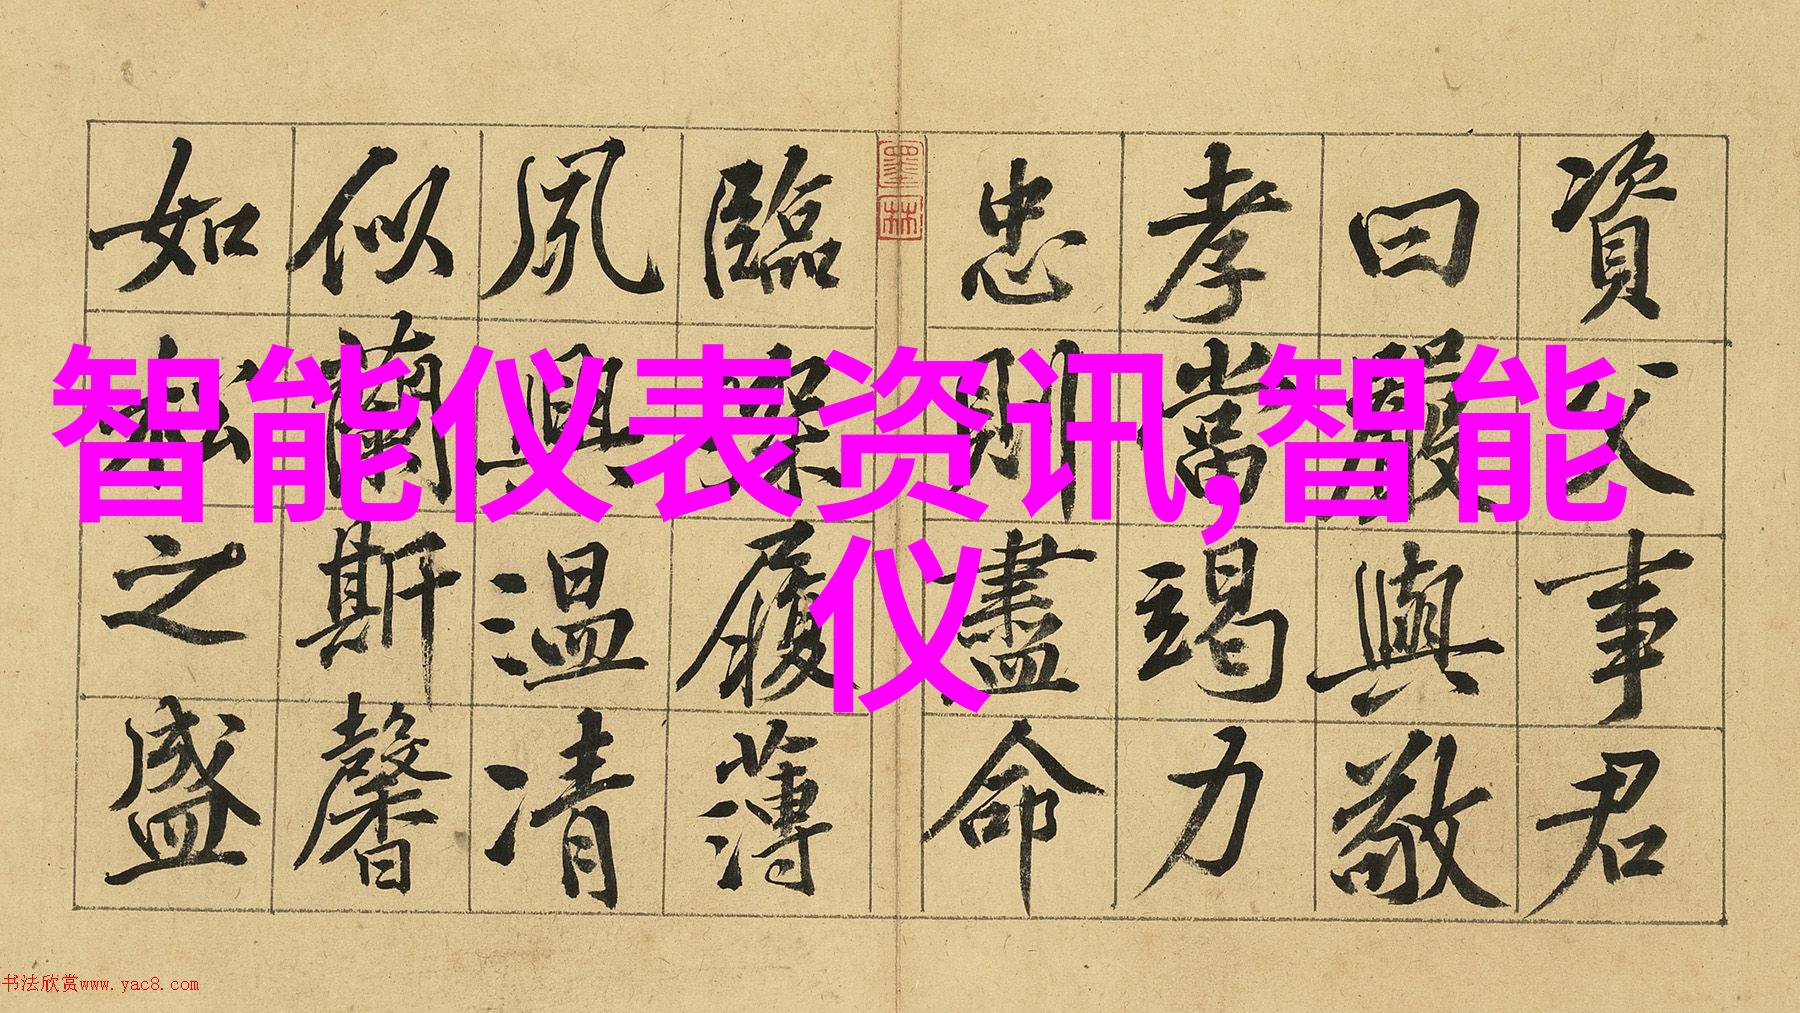 資父事君
曰嚴與敬
孝當竭力
忠則盡命
臨深履薄
夙興温凊
似蘭斯馨
如松之盛
墨林
智能仪表资讯,智能
仪
书法欣赏www.yac8.com